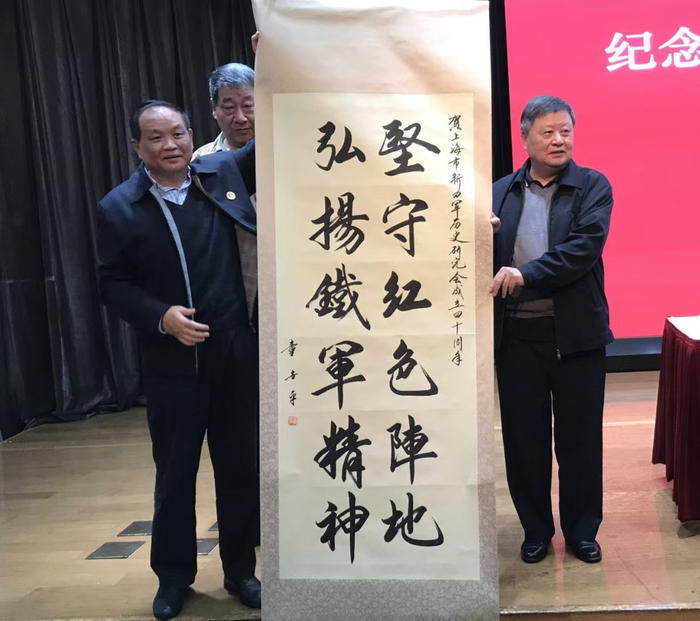 纪念
贺上海市新四军历史研究会成立四十周年
堅守红色陣地
弘揚鐵軍精神